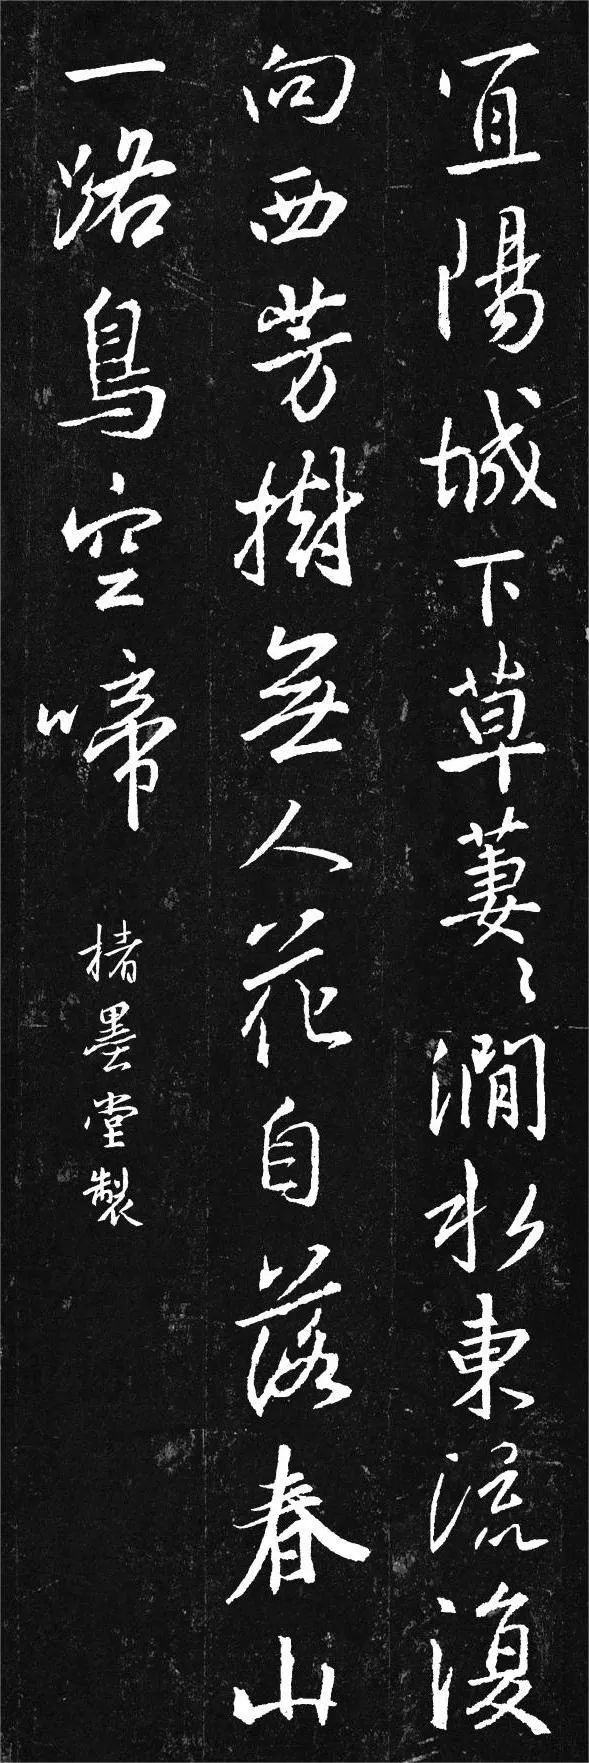 宜陽城下草萋〻澗水東流復
向西芳樹無人花自落春山
一路鳥空啼
楮墨堂製